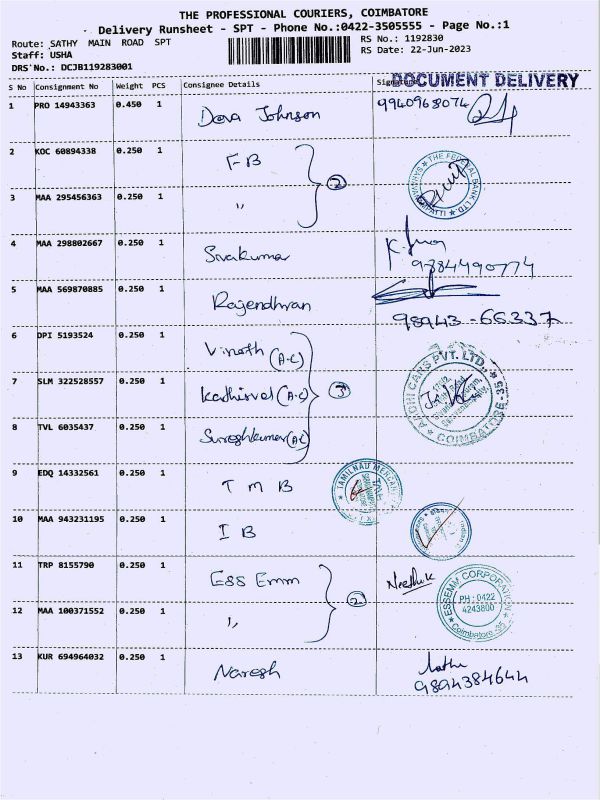 THE PROFESSIONAL COURIERS, COIMBATORE
Delivery Runsheet - SPT - Phone No.:0422-3505555 - Page No.:1
Route: SATHY MAIN ROAD SPT
RS No.: 1192830
Staff: USHA
RS Date: 22-Jun-2023
DRS No.: DCJB119283001
DOCUMENT DELIVERY
S No Consignment No Weight PCS Consignee Details Signature
1 PRO 14943363 0.450 1 Deva Johnson 9940968074
2 KOC 60894338 0.250 1 F B
THE FEDERAL BANK LTD.
2
3 MAA 295456363 0.250 1 "
4 MAA 298802667 0.250 1 Sivakumar 9884490774
5 MAA 569870885 0.250 1 Rajendhran 98943-66337
6 DPI 5193524 0.250 1 Vinoth (A.C)
7 SLM 322528557 0.250 1 Kadhirvel (A.C) 3
CARS PVT. LTD., COIMBATORE-35
8 TVL 6035437 0.250 1 Sureshkumar (A.C)
9 EDQ 14332561 0.250 1 T M B
TAMILNAD MERCAN
10 MAA 943231195 0.250 1 I B
11 TRP 8155790 0.250 1 Ess Emm
ESSEMM CORPORATION
PH : 0422
4243800
Coimbatore-35
2
12 MAA 100371552 0.250 1 "
13 KUR 694964032 0.250 1 Naresh
9894384644